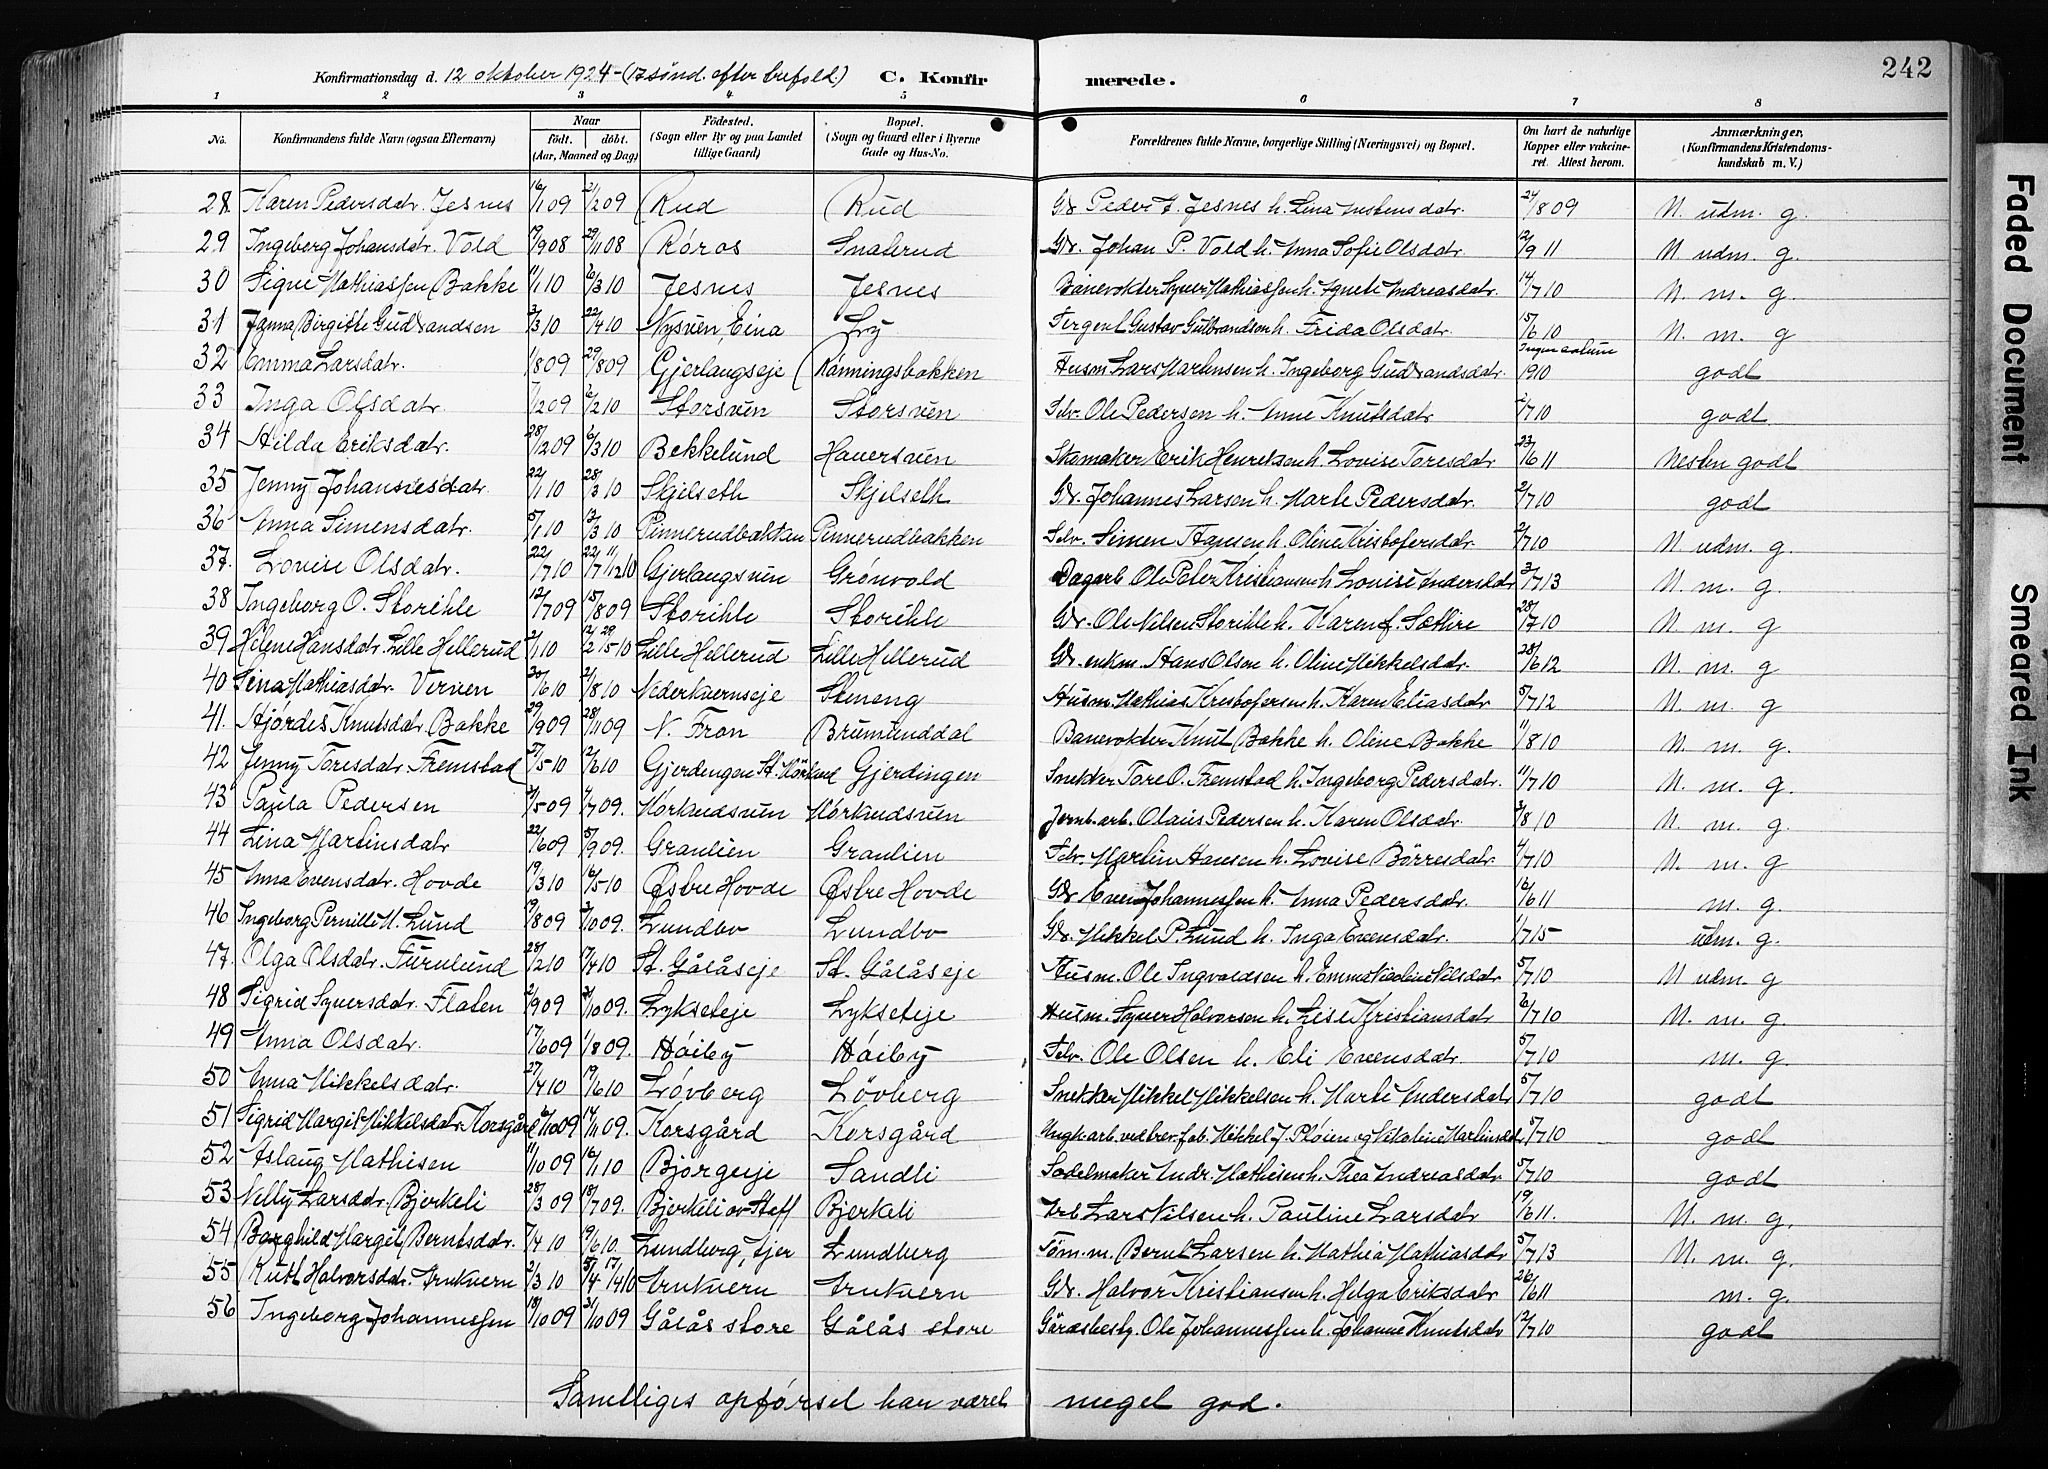 242
Konfirmationsdag d. 12 oktober 1924 - (17 sønd. efter trefold) C. Konfir merede.
1 2 3 4 5 6 7 8
No. Konfirmandens fulde Navn (ogsaa Efternavn) Naar født. døbt. (Aar, Maaned og Dag) Fødested. (Sogn eller By og paa Landet tillige Gaard) Bopæl. (Sogn og Gaard eller i Byerne Gade og Hus-No. Forældrenes fulde Navne, borgerlige Stilling (Næringsvei) og Bopæl. Om havt de naturlige Kopper eller vakcineret. Attest herom. Anmærkninger, (Konfirmandens Kristendomskundskab m. V.)
28 Karen Pedersdatr. Jesnes 16/1 09 21/2 09 Rud Rud Gdr Peder Jesnes h. Lina datr. 24/8 09 N. udm. g.
29 Ingeborg Johansdatr. Vold 19/9 08 29/11 08 Røros Snaterud Gdr. Johan P. Vold h. Anna Sofie Olsdatr. 12/9 11 N udm. g.
30 Signe Mathiassen Bakke 11/1 10 6/3 10 Jesnes Jesnes Banevokter Syver Mathiassen h. Agnete Andreasdatr. 14/7 10 N. m. g.
31 Janna Birgitte Gudbrandsen 2/3 10 22/4 10 Nysven, Eina Ly Gustav Gulbrandsen h. Frida Olsdatr. 15/6 10 N. m. g
32 Emma Larsdatr. 1/8 09 29/8 09 Gjerlangseje Rønningsbakken Husm Lars Martinsen h. Ingeborg Gudbrandsdatr. 1910 godt
33 Inga Olsdatr. 7/12 09 6/2 10 Storsven Storsven Selv. Ole Pedersen h. Anne Knutsdatr 2/7 10 godt
34 Hilda Eriksdatr. 28/12 09 6/3 10 Bekkelund Haversven Skomaker Erik Henriksen h. Lovise Toresdatr 23/6 11 Nesten godt
35 Jenny Johannesdatr. 22/1 10 28/3 10 Skjelseth Skjelseth Gdr. Johannes Larsen h. Marte Pedersdatr. 2/7 10 godt
36 Anna Simensdatr. 5/1 10 13/3 10 Pinnerudbakken Pinnerudbakken Selv. Simen Hansen h. Oline Kristofersdatr. 2/7 10 N udm. g.
37. Lovise Olsdatr. 22/7 10 22/7 11/12 10 Gjerlangsven Grønvold Dagarb Ole Peter Kristiansen h. Lovise Andersdatr 3/7 13 N. m. g.
38 Ingeborg O. Storihle 12/7 09 15/8 09 Storihle Storihle Gdr. Ole Nilsen Storihle h. Karen f. Sæthre 28/7 10 N m. g
39 Helene Hansdatr. Lille Hellerud 2/1 10 Lille Hellerud Lille Hellerud Gdr. enkm. Hans Olsen h. Oline Mikkelsdatr. 28/6 12 N. m. g
40 Lena Mathiasdatr. Verven 30/6 10 21/8 10 Nederkvernseje Steneng Husm. Mathias Kristofersen h. Karen Eliasdatr 5/7 12 N. m. g
41. Hjørdes Knutsdatr Bakke 29/9 09 28/11 09 N. Fron Brumunddal Banevokter Knut Bakke h. Oline Bakke 11/8 10 N. m. g.
42 Jenny Toresdatr. Fremstad 27/5 10 12/6 10 Gjerdingen St. Mörkved Gjerdingen Snekker Tore O. Fremstad h. Ingeborg Pedersdatr. 11/7 10 N. m. g.
43 Paula Pedersen 9/5 09 4/7 09. Mörkvedsven Mörkvedsven Jernb.arb. Olaus Pedersen h. Karen Olsdatr. 3/8 10 N. m. g.
44 Lina Martinsdatr 22/6 09 5/9 09. Granlien Granlien Selv. Martin Hansen h. Lovise Börresdatr. 4/7 10 N. m. g
45 Anna Evensdatr. Hovde 19/3 10 16/5 10 Østre Hovde Østre Hovde Gdr Even Johannessen h. Anna Pedersdatr. 16/6 11 m. g.
46 Ingeborg Pernille M. Lund 19/8 09 3/10 09. Lundbo Lundbo Gdr. Mikkel P. Lund h. Inga Evensdatr. 11/7 15 udm. g.
47. Olga Olsdatr. Furulund 28/2 10 17/4 10 St. Gålåseje St. Gålåseje Husm. Ole Ingvaldsen h. Emma Nikoline Nilsdatr 5/7 10 N udm. g
48 Sigrid Syversdatr. Flaten 2/9 09 3/10 09. Lykseteje Lykseteje Husm. Syver Halvorsen h. Lise Kristiansdatr 6/7 10 N. m. g.
49 Anna Olsdatr. 17/6 09 1/8 09. Høiby Høiby Selv. Ole Olsen h. Eli Evensdatr. 5/7 10 m. g.
50 Anna Mikkelsdatr. 27/4 10 19/6 10 Løvberg Lövberg Snekker Mikkel Mikkelsen h. Marte Andersdatr 5/7 10 godt
51 Sigrid Margit Mikkelsdatr. Korsgård 6/10 09 14/11 09. Korsgård Korsgård Mikkel J. Pløien og Nikoline Martinsdtr. 5/7 10 godt
52 Aslaug Mathisen 11/10 09 16/1 10 Bjørgeeje Sandli Sadelmaker Andr. Mathisen h. Thea Andreasdatr. 5/7 10 godt
53 Nelly Larsdatr Bjerkeli 28/3 09 18/7 09. Bjerkeli ov Steff Bjerkeli Arb Lars Nilsen h. Pauline Larsdatr 19/6 11. N. m. g.
54 Borghild Margit Berntsdatr. 7/4 10 19/6 10. Lundberg, ejer Lundberg Tøm.m. Bernt Larsen h. Mathea Mathiasdatr 5/7 13 N. m. g.
55 Rutt Halvorsdatr. Arukvern 2/3 10 5/4 17/4 10 Arukvern Arukvern Gdr. Halvor Kristiansen h. Helga Eriksdatr 26/6 11 m. g.
56 Ingeborg Johannessen 18/10 09 31/10 09 Gålås store Gålås store Gårdsbesty. Ole Johannessen h. Johanne Knutsdatr 12/7 10 godt
Samtliges opførsel har været meget god.
Faded Document
Smeared Ink